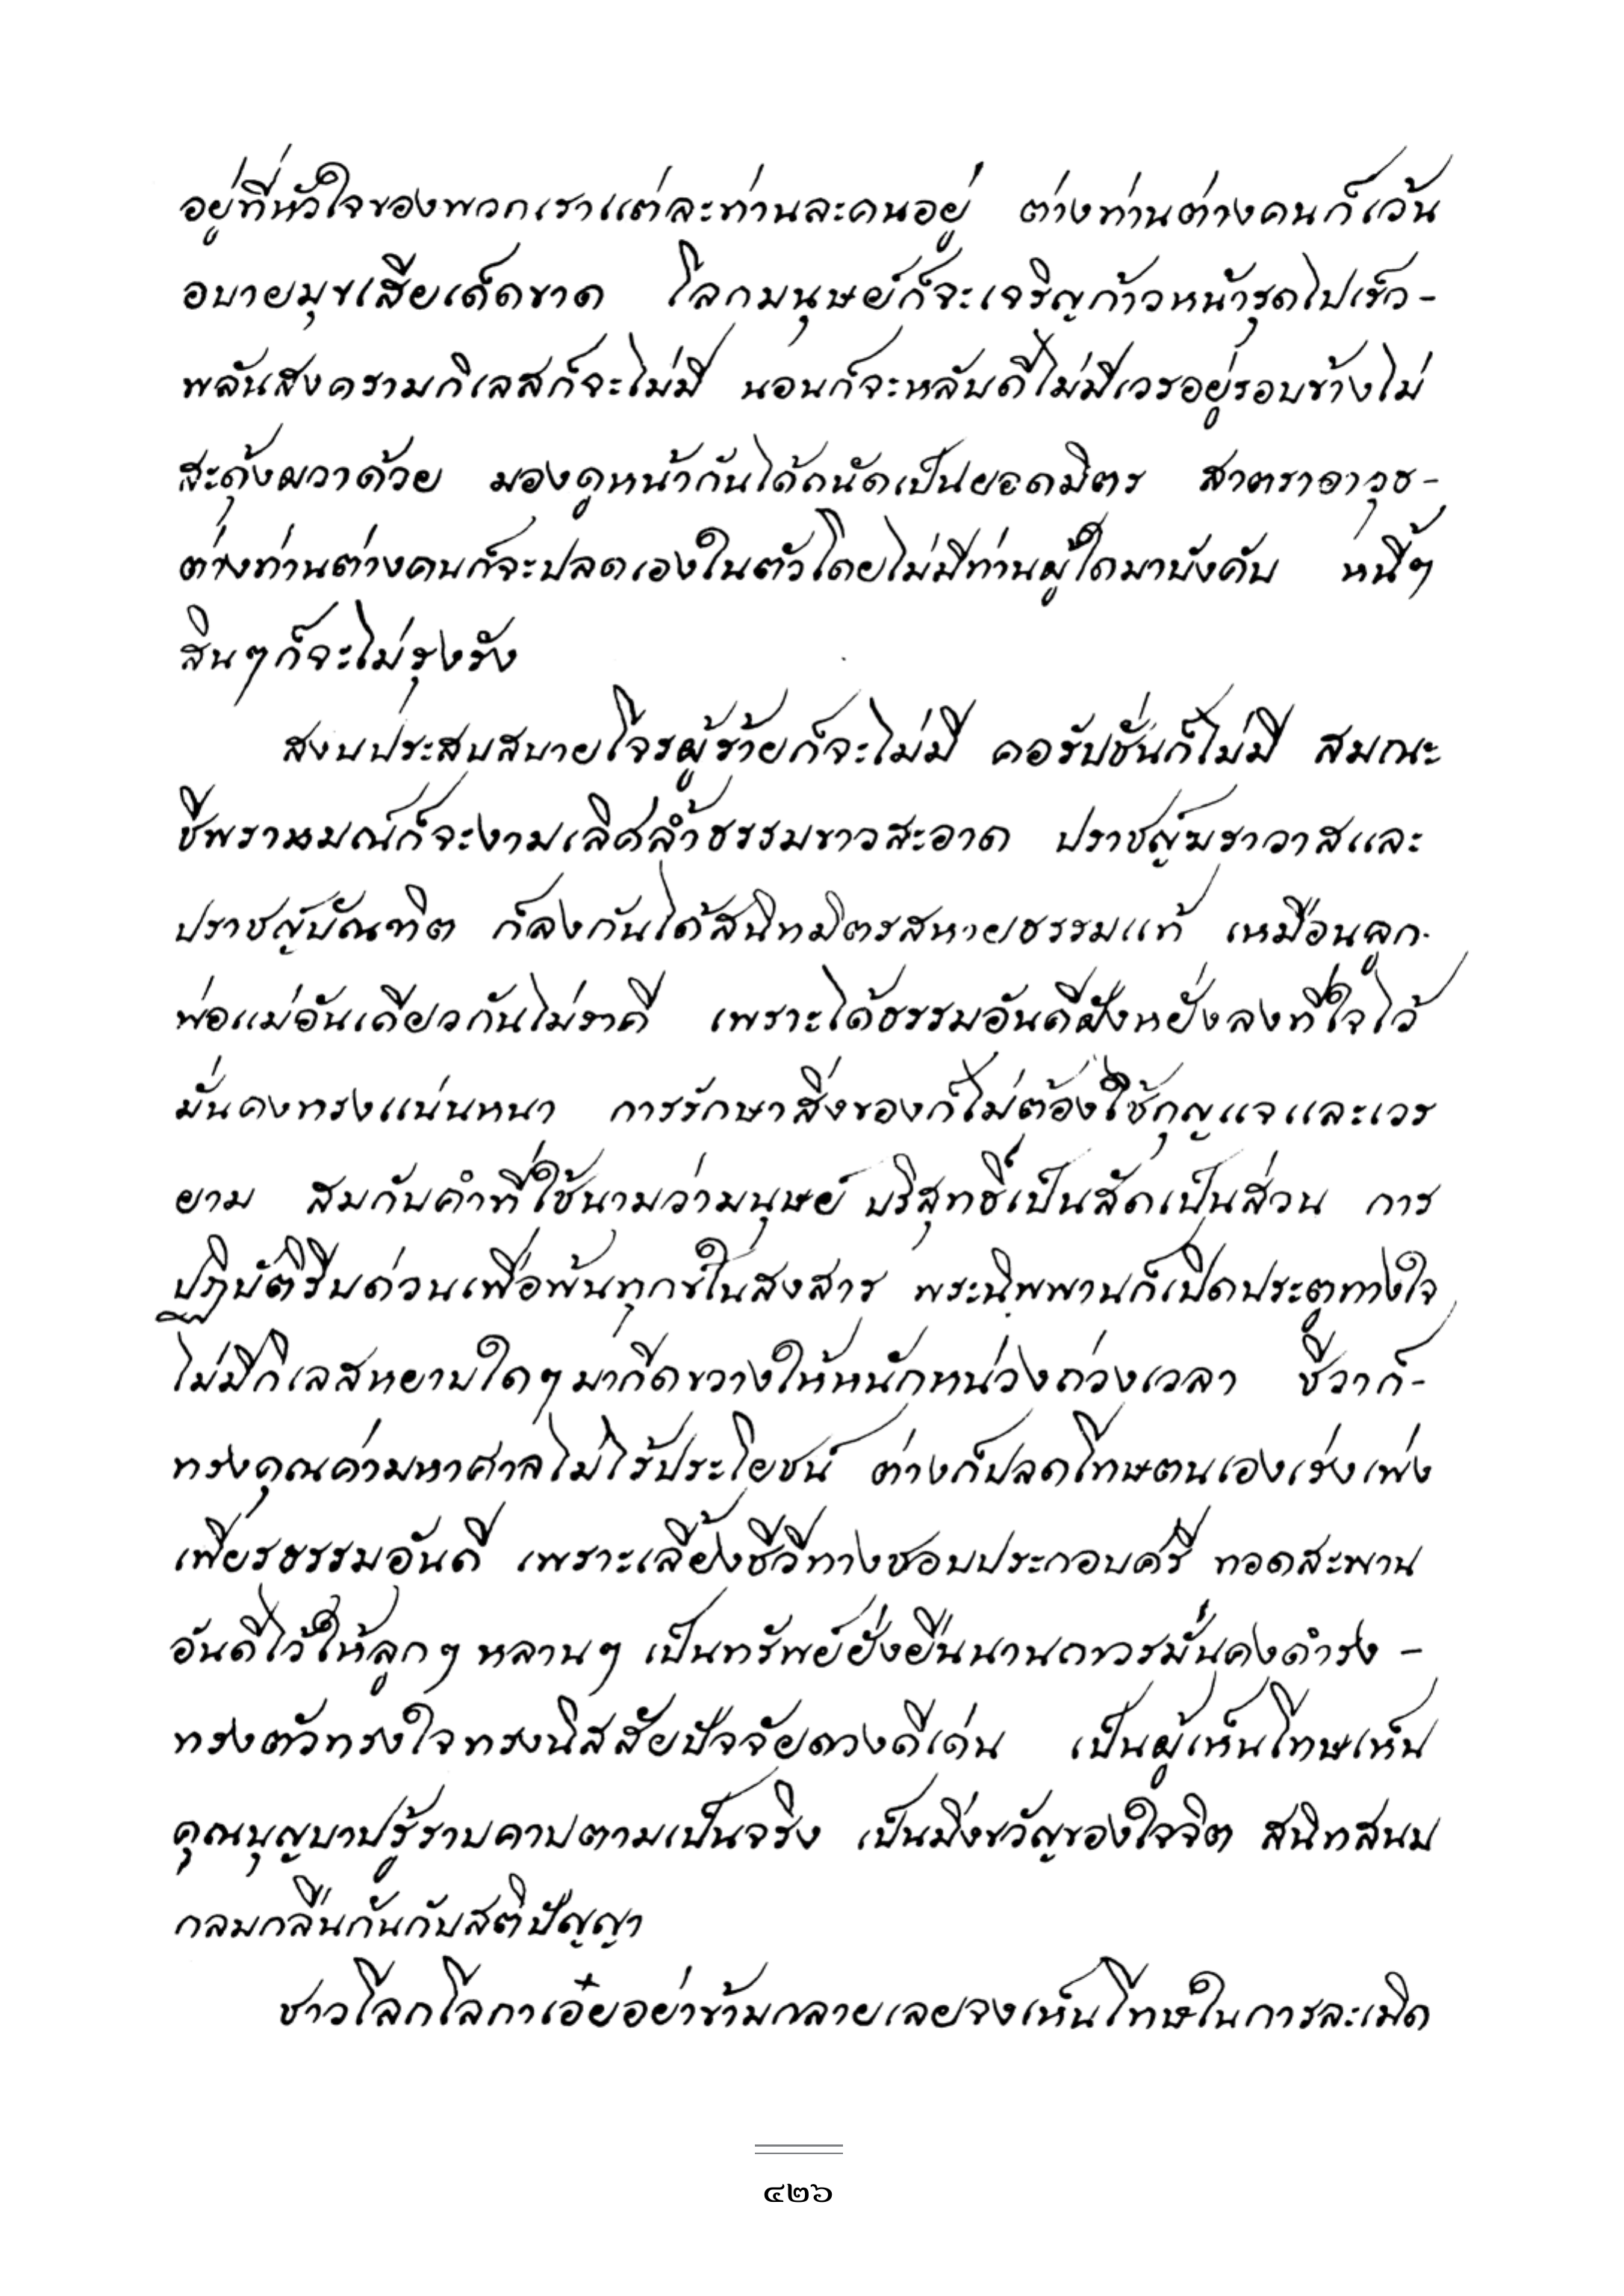 อยู่ที่หัวใจของพวกเราแต่ละท่านละคนอยู่ ต่างท่านต่างคนก็เว้น
อบายมุขเสียเด็ดขาด โลกมนุษย์ก็จะเจริญก้าวหน้ารุดไปเร็ว-
พลันสงครามกิเลสก็จะไม่มี นอนก็จะหลับดีไม่มีเวรอยู่รอบข้างไม่
สะดุ้งผวาด้วย มองดูหน้ากันได้ถนัดเป็นยอดมิตร สาตราอาวุธ-
ต่างท่านต่างคนก็จะปลดเองในตัวโดยไม่มีท่านผู้ใดมาบังคับ หนี้ๆ
สินๆก็จะไม่รุงรัง
สงบประสบสบายโจรผู้ร้ายก็จะไม่มี คอรัปชั่นก็ไม่มี สมณะ
ชีพราหมณ์ก็จะงามเลิศล้ำธรรมขาวสะอาด ปราชญ์ฆราวาสและ
ปราชญ์บัณฑิต ก็ลงกันได้สนิทมิตรสหายธรรมแท้ เหมือนลูก-
พ่อแม่อันเดียวกันไม่ราคี เพราะได้ธรรมอันดีฝังหยั่งลงที่ใจไว้
มั่นคงทรงแน่นหนา การรักษาสิ่งของก็ไม่ต้องใช้กุญแจและเวร
ยาม สมกับคำที่ใช้นามว่ามนุษย์ บริสุทธิ์เป็นสัดเป็นส่วน การ
ปฏิบัติรีบด่วนเพื่อพ้นทุกข์ในสงสาร พระนิพพานก็เปิดประตูทางใจ
ไม่มีกิเลสหยาบใดๆมากีดขวางให้หนักหน่วงถ่วงเวลา ชีวาก็-
ทรงคุณค่ามหาศาลไม่ไร้ประโยชน์ ต่างก็ปลดโทษตนเองเร่งเพ่ง
เพียรธรรมอันดี เพราะเลี้ยงชีวีทางชอบประกอบศรี ทอดสะพาน
อันดีไว้ให้ลูกๆ หลานๆ เป็นทรัพย์ยั่งยืนนานถาวรมั่นคงดำรง -
ทรงตัวทรงใจทรงนิสสัยปัจจัยดวงดีเด่น เป็นผู้เห็นโทษเห็น
คุณบุญบาปรู้ราบคาบตามเป็นจริง เป็นมิ่งขวัญของใจจิต สนิทสนม
กลมกลืนกันกับสติปัญญา
ชาวโลกโลกาเอ๋ยอย่าข้ามกลายเลยจงเห็นโทษในการละเมิด
๔๒๖